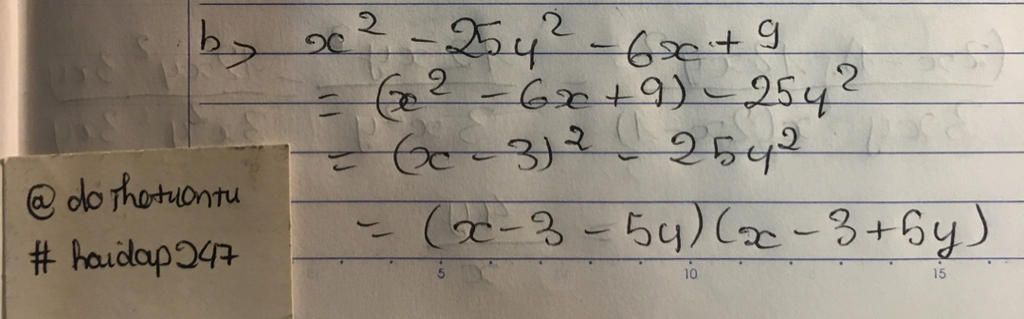 b> x² - 25y² - 6x + 9
= (x² - 6x + 9) - 25y²
= (x - 3)² - 25y²
= (x - 3 - 5y)(x - 3 + 5y)
@ do thotuontu
# haidap247
5 10 15